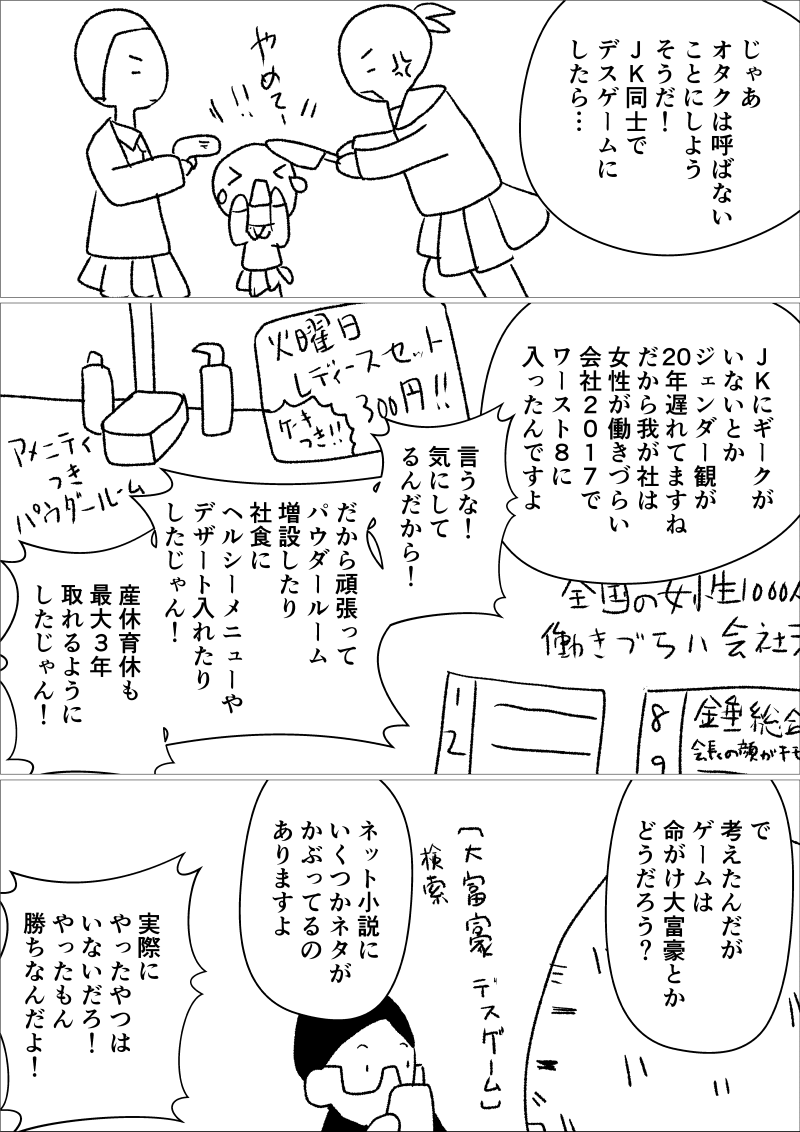 じゃあ
オタクは呼ばない
ことにしよう
そうだ！
ＪＫ同士で
デスゲームに
したら…
やめてー
ＪＫにギークが
いないとか
ジェンダー観が
20年遅れてますね
だから我が社は
女性が働きづらい
会社２０１７で
ワースト８に
入ったんですよ
火曜日
レディースセット
300円!!
ケーキ
つき!!
言うな！
気にして
るんだから！
アメニティ
つき
パウダールーム
だから頑張って
パウダールーム
増設したり
社食に
ヘルシーメニューや
デザート入れたり
したじゃん！
産休育休も
最大３年
取れるように
したじゃん！
全国の女性1000人
働きづらい会社
1
2
8
9
錘総会
会長の顔がキモ
で
考えたんだが
ゲームは
命がけ大富豪とか
どうだろう？
〔大富豪 デスゲーム〕
検索
ネット小説に
いくつかネタが
かぶってるの
ありますよ
実際に
やったやつは
いないだろ！
やったもん
勝ちなんだよ！